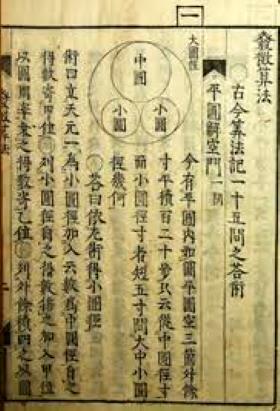 發微算法
古今算法記一十五問之答術
平圓解空門一問
今有平圓內如圖平圓空三箇外餘
寸平積百二十步只云從中圓徑寸
而小圓徑寸者短五寸問大中小圓
徑幾何
答曰依左術得小圓徑
術曰立天元一為小圓徑加入云數為中圓徑自之
得數寄甲位 列小圓徑自之得數倍之加入甲位
以圓周率乘之得數寄乙位 列外餘積四之以圓
一
大圓徑
中圓
小圓
小圓